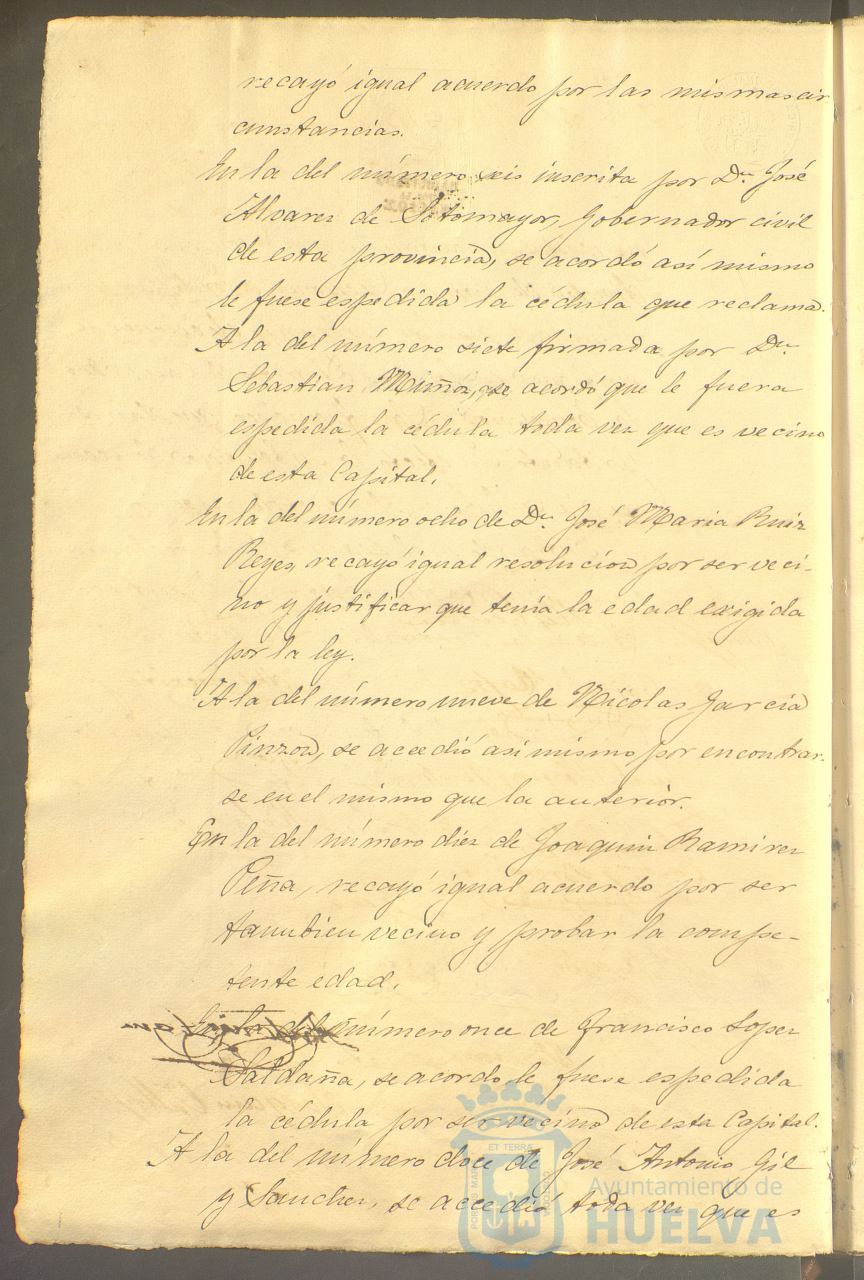 recayó igual acuerdo por las mismas cir
cunstancias.
En la del número seis inscrita por Dn José
Alvarez de Sotomayor, Gobernador civil
de esta provincia, se acordó asi mismo
le fuese espedida la cédula que reclama.
A la del número siete firmada por Dn
Sebastian Muñoz, se acordó que le fuera
espedida la cédula toda vez que es vecino
de esta Capital.
En la del número ocho de Dn José Maria Ruiz
Reyes, recayó igual resolucion por ser veci-
no y justificar que tenia la edad exigida
por la ley.
A la del número nueve de Nicolas Garcia
Pinzon, se accedió asi mismo por encontrar-
se en el mismo que la anterior.
En la del número diez de Joaquin Ramirez
Peña, recayó igual acuerdo por ser
tambien vecino y probar la compe-
tente edad.
En la del número once de Francisco Lopez
Saldaña, se acordo le fuese espedida
la cédula por ser vecino de esta Capital.
A la del número doce de José Antonio Gil
y Sanchez, se accedió toda vez que es
Ayuntamiento de
HUELVA